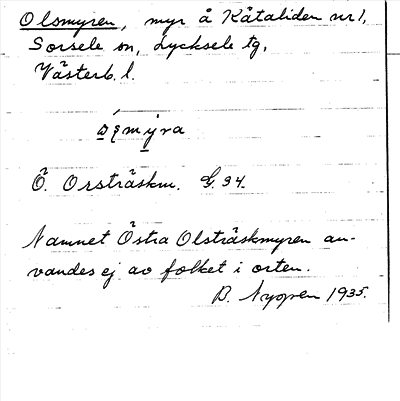 Olsmyren, myr å Kåtaliden nr 1,
Sorsele sn, Lycksele tg,
Västerb. l.
Ö. Orsträskm. G. 34.
Namnet Östra Olsträskmyren an-
vandes ej av folket i orten.
B. Nygren 1935.